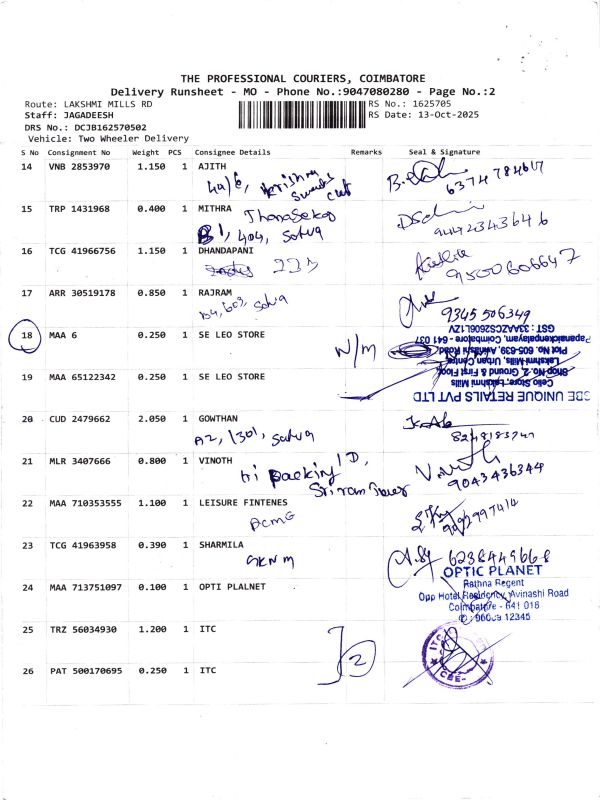 THE PROFESSIONAL COURIERS, COIMBATORE
Delivery Runsheet - MO - Phone No.:9047080280 - Page No.:2
Route: LAKSHMI MILLS RD RS No.: 1625705
Staff: JAGADEESH RS Date: 13-Oct-2025
DRS No.: DCJB162570502
Vehicle: Two Wheeler Delivery
S No Consignment No Weight PCS Consignee Details Remarks Seal & Signature
14 VNB 2853970 1.150 1 AJITH
4A/6, Krishna
6374784617
15 TRP 1431968 0.400 1 MITHRA
B1, 404, Satva
9442343646
16 TCG 41966756 1.150 1 DHANDAPANI
9500606647
17 ARR 30519178 0.850 1 RAJRAM
D4, 603, Satva
9345506349
18 MAA 6 0.250 1 SE LEO STORE
N/M
19 MAA 65122342 0.250 1 SE LEO STORE
SBE UNIQUE RETAILS PVT LTD
Celio Store, Lakshmi Mills
Shop No. 2, Ground & First Floor,
Lakshmi Mills, Urban Centre,
Plot No. 605-639, Avinashi Road
Papanaickenpalayam, Coimbatore - 641 037
GST: 33AAZCS2606L1ZV
20 CUD 2479662 2.050 1 GOWTHAN
A2, 1301, Satva
21 MLR 3407666 0.800 1 VINOTH
packing
Sriram Tower
9043436344
22 MAA 710353555 1.100 1 LEISURE FINTENES
23 TCG 41963958 0.390 1 SHARMILA
GKNM
6238449668
24 MAA 713751097 0.100 1 OPTI PLALNET
OPTIC PLANET
Rathna Regent
Opp Hotel Residency, Avinashi Road
Coimbatore - 641 018
25 TRZ 56034930 1.200 1 ITC
2
ITC
CBE-
26 PAT 500170695 0.250 1 ITC